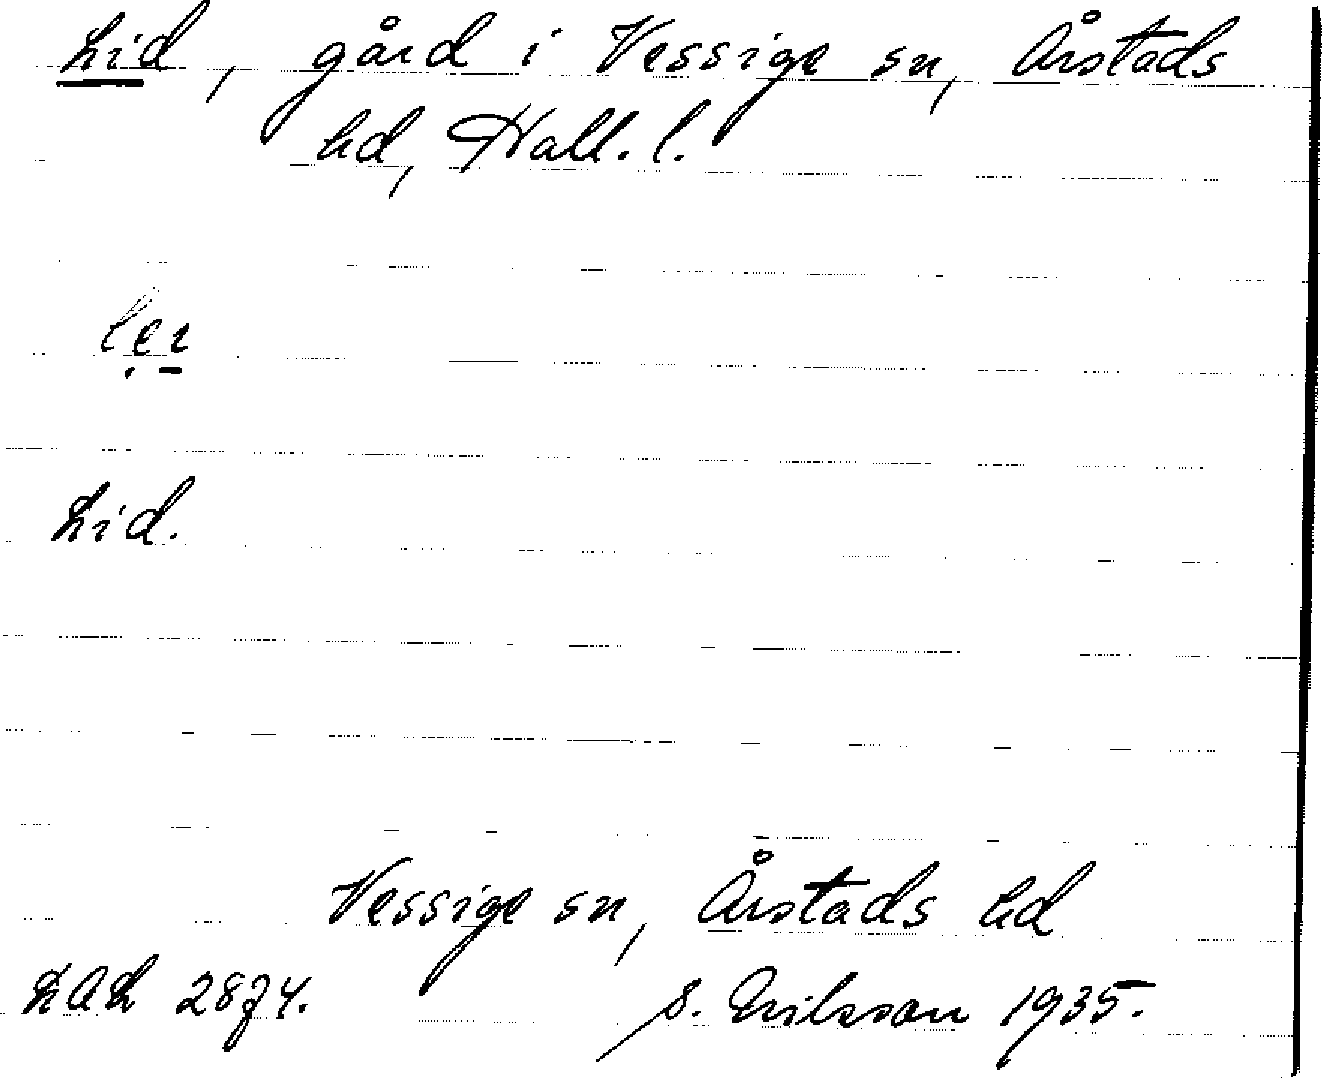 Lid, gård i Vessige sn, Årstads
hd, Hall. l.
Lid.
Vessige sn, Årstads hd
LAL 2874. S. Eriksson 1935.